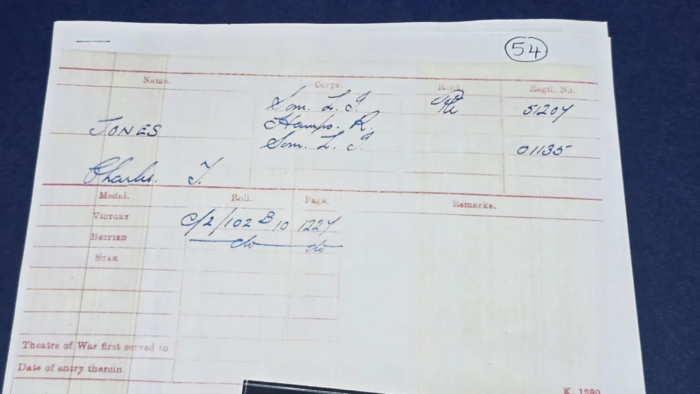 54
Name. Corps. Rank. Regtl. No.
Som. L. I. Pte 51207
JONES Hamps. R.
Som. L. I. 01135
Charles. J.
Medal. Roll. Page. Remarks.
VICTORY C/2/102 B 10 1227
BRITISH do do
STAR
Theatre of War first served in
Date of entry therein
K. 1380